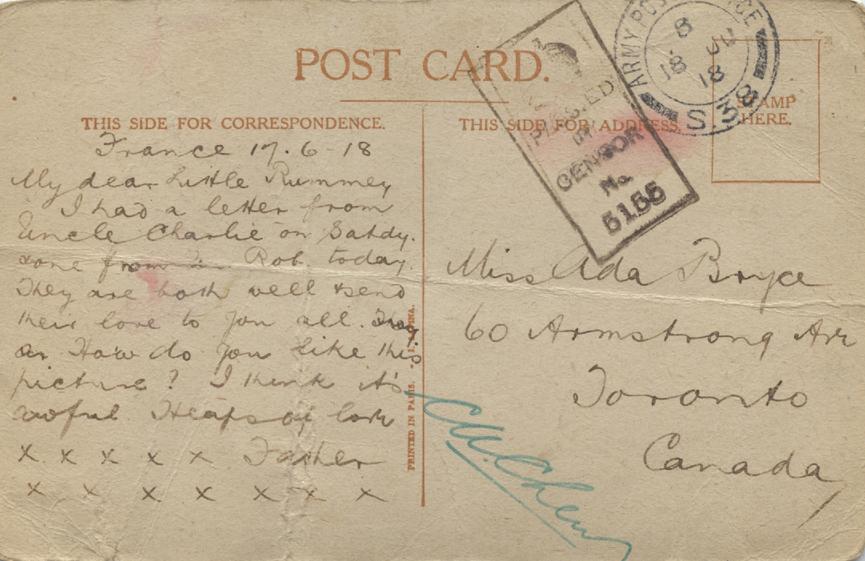 POST CARD.
THIS SIDE FOR CORRESPONDENCE.
France 17.6-18
My dear Little Rummey
I had a letter from
Uncle Charlie on Satdy.
one from Rob. today.
They are both well & send
their love to you all.
or How do you like this
picture? I think it's
awful Heaps of love
x x x x x Father
x x x x x x x
PRINTED IN PARIS.
THIS SIDE FOR ADDRESS.
PASSED
BY
CENSOR
No.
5155
ARMY POST OFFICE
8
JU
18 18
S.38
STAMP
HERE.
Miss Ada Bryce
60 Armstrong Ave
Toronto
Canada